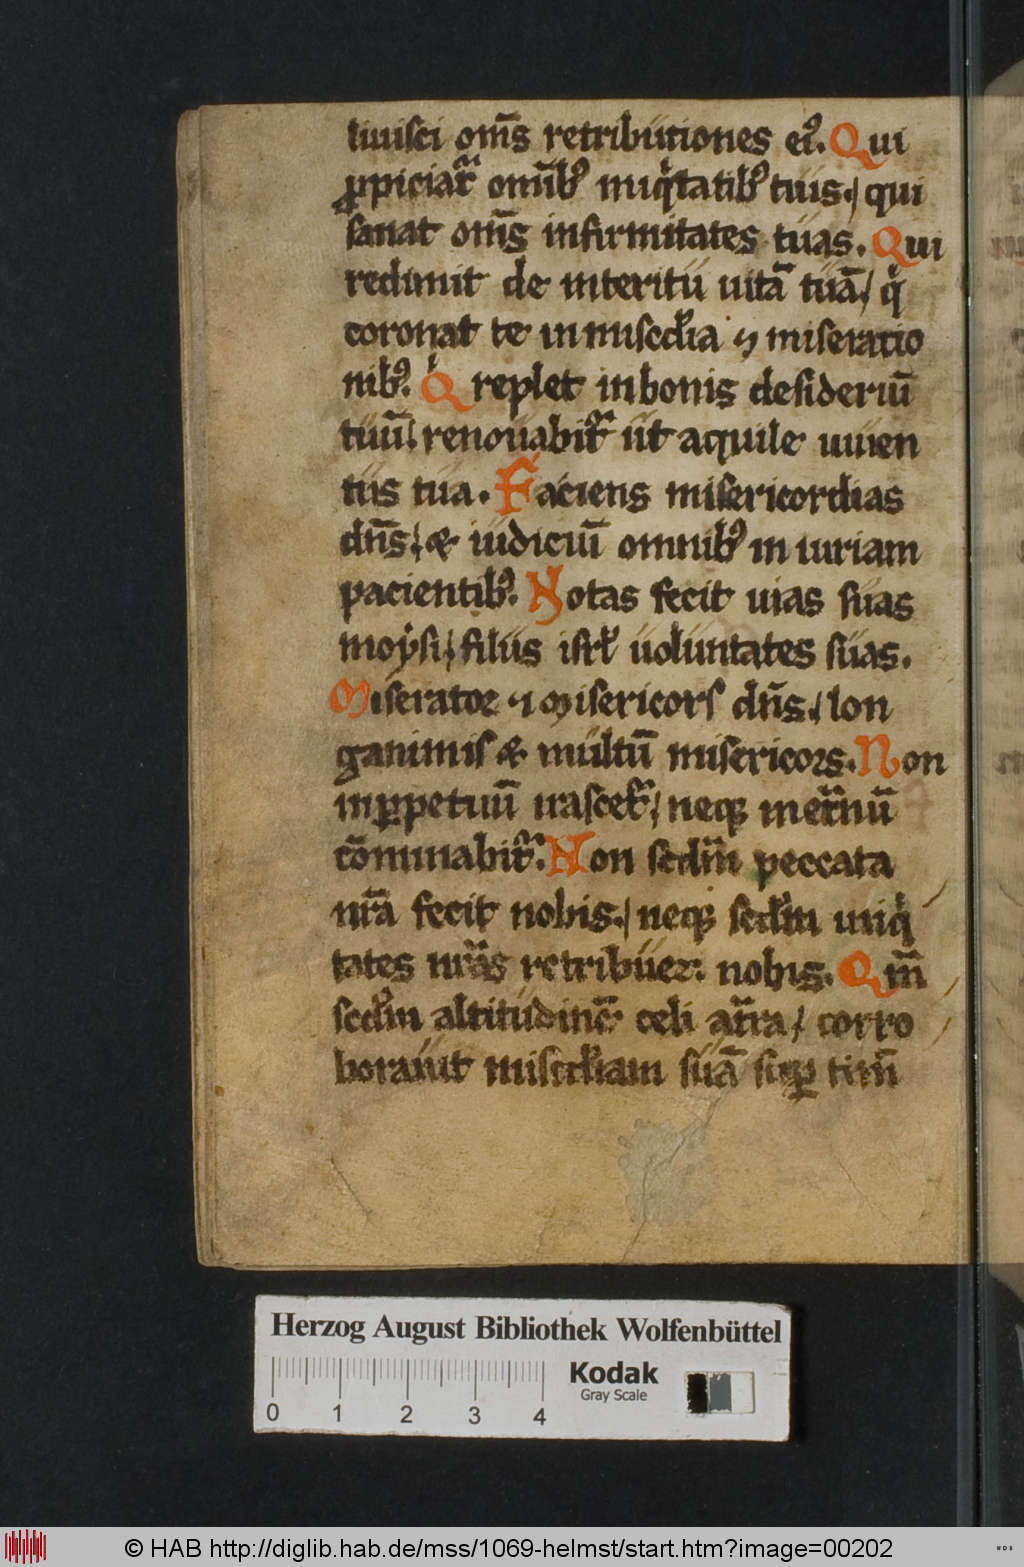 liuisci om̄s retributiones eiꝰ. Qui
ꝓpiciatᷣ omībꝫ iniqͥtatibꝫ tuis./ qui
sanat om̄s infirmitates tuas. Qui
redimit de interitu uitā tuā/ qͥ
coronat te in misc̄dia ⁊ miseratio
nibꝫ. Qͥ replet in bonis desideriū
tuū/ renouabitᷣ ut aquile iuuen
tus tua. Faciens misericordias
dn̄s/ & iudiciū omnibꝫ in iuriam
pacientibꝫ. Notas fecit uias suas
moẏsi/ filiis isrl̄ uoluntates suas.
Miserator ⁊ Misericors dn̄s./ lon
ganimis & multū misericors. Non
inꝑpetuū irascetᷣ/ neqꝫ inet̄nū
cōminabitᷣ. Non scd̄m peccata
nrā fecit nobis./ neqꝫ scd̄m iniqͥ
tates nrās retribuet nobis. Qm̄
scd̄m altitudinē celi at̄ra/ corro
borauit misc̄diam suā suꝑ tim̄
Herzog August Bibliothek Wolfenbüttel
Kodak
Gray Scale
0 1 2 3 4
© HAB http://diglib.hab.de/mss/1069-helmst/start.htm?image=00202